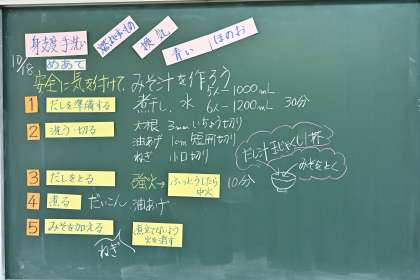 身支度 手洗い
燃えやすいもの
換気
青い ほのお
10/8
めあて
安全に気を付けて、みそ汁を作ろう
1 だしを準備する 煮干し、水
5人-1000mL
6人-1200mL 30分
2 洗う・切る
大根 3mm いちょう切り
油あげ 1cm 短冊切り
ねぎ 小口切り
だし汁 おたま1杯
みそをとく
3 だしをとる 強火→ ふっとうしたら中火 10分
4 煮る だいこん 油あげ
5 みそを加える
ねぎ
煮立てないよう
火を消す